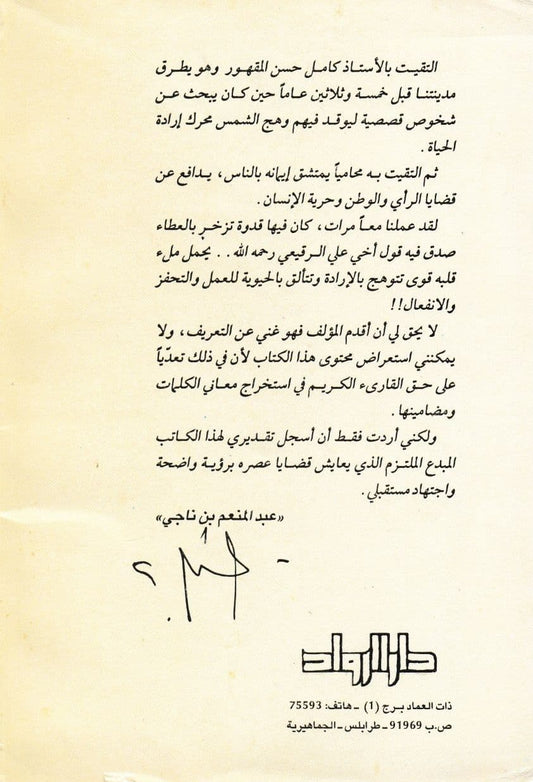 التقيت بالأستاذ كامل حسن المقهور وهو يطرق
مدينتنا قبل خمسة وثلاثين عاماً حين كان يبحث عن
شخوص قصصية ليوقد فيهم وهج الشمس محرك إرادة
الحياة .
ثم التقيت به محامياً يمتشق إيمانه بالناس ، يدافع عن
قضايا الرأي والوطن وحرية الإنسان .
لقد عملنا معاً مرات ، كان فيها قدوة تزخر بالعطاء
صدق فيه قول أخي علي الرقيعي رحمه الله . . يحمل ملء
قلبه قوى تتوهج بالإرادة وتتألق بالحيوية للعمل والتحفز
والانفعال ! !
لا يحق لي أن أقدم المؤلف فهو غني عن التعريف ، ولا
يمكنني استعراض محتوى هذا الكتاب لأن في ذلك تعدّياً
على حق القارىء الكريم في استخراج معاني الكلمات
ومضامينها .
ولكني أردت فقط أن أسجل تقديري لهذا الكاتب
المبدع الملتزم الذي يعايش قضايا عصره برؤية واضحة
واجتهاد مستقبلي .
«عبد المنعم بن ناجي»
دار الرواد
ذات العماد برج (1) ـ هاتف: 75593
ص.ب 91969 ـ طرابلس ـ الجماهيرية